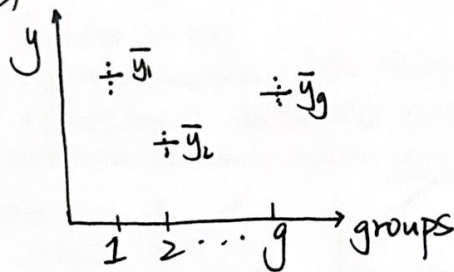 )
y
ȳ₁
ȳ₂
ȳg
1 2 ... g groups